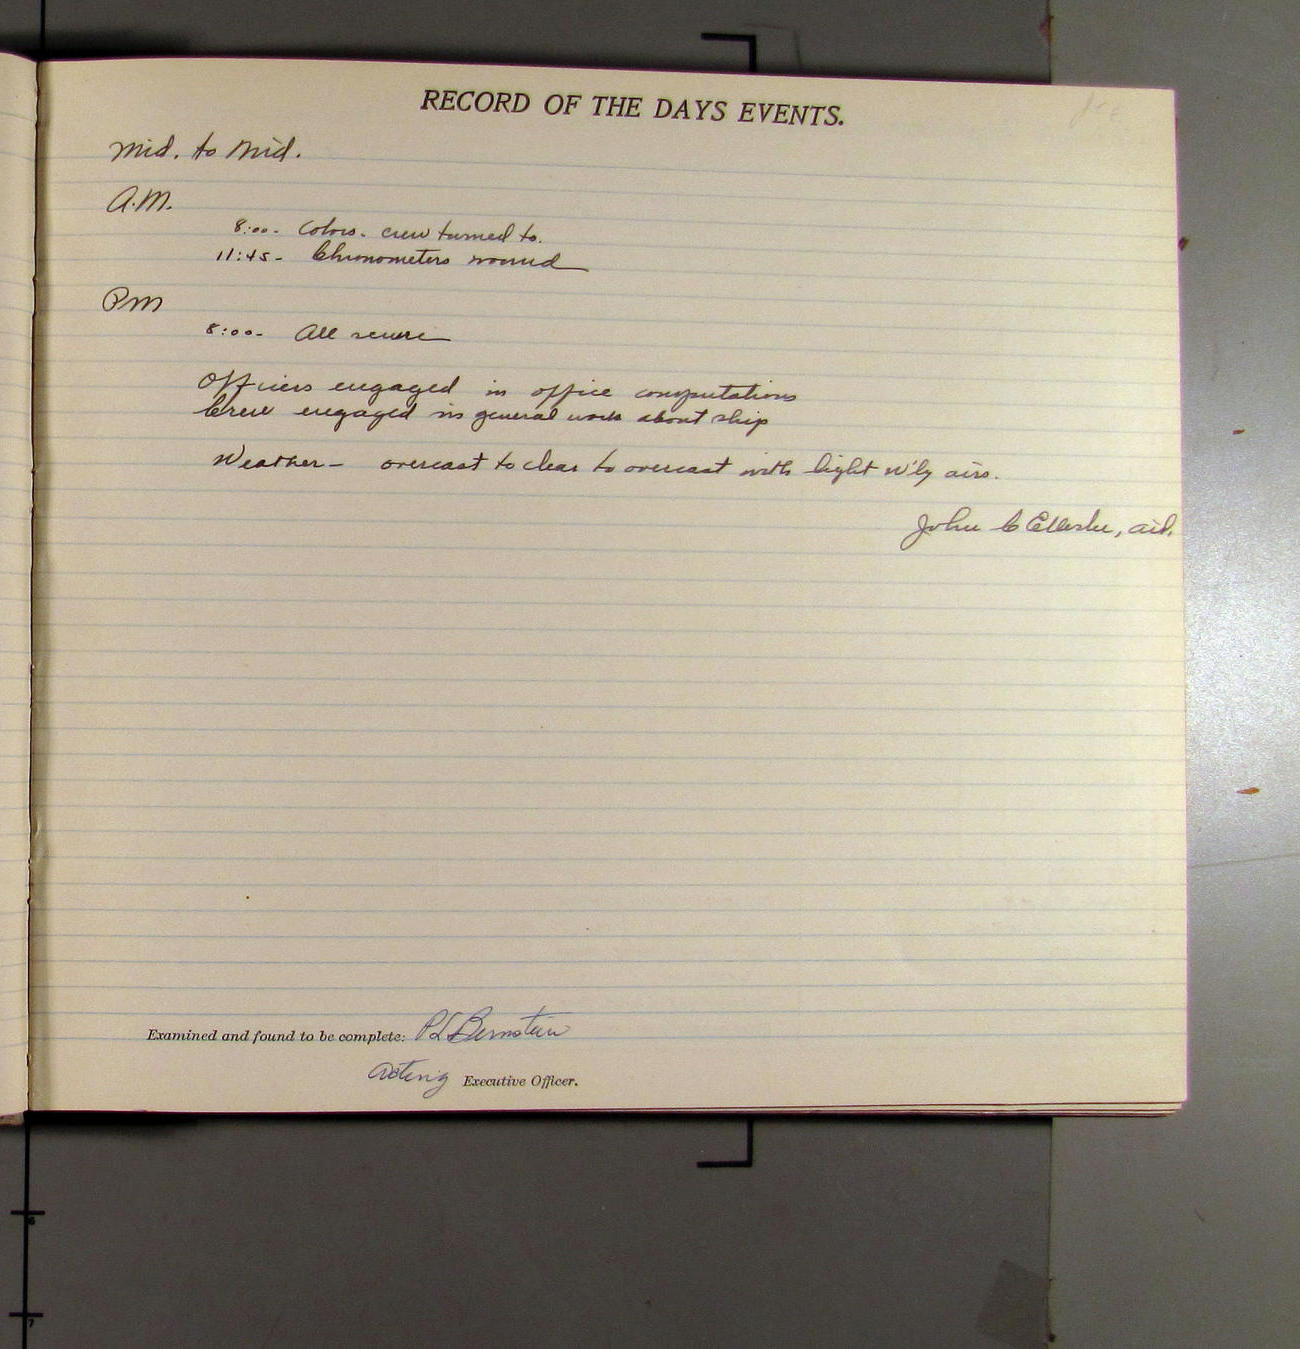 RECORD OF THE DAYS EVENTS.
Mid. to Mid.
A.M.
8:00- Colors. crew turned to.
11:45- Chronometers wound
PM
8:00- All secure
Officers engaged in office computations
Crew engaged in general work about ship
Weather- overcast to clear to overcast with light W'ly airs.
John C Ellerbe, aid.
Examined and found to be complete: P L Bernstein
Acting Executive Officer.
6
7